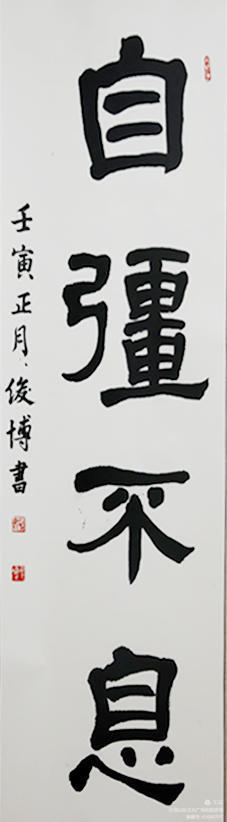 自彊不息
壬寅正月、俊博書